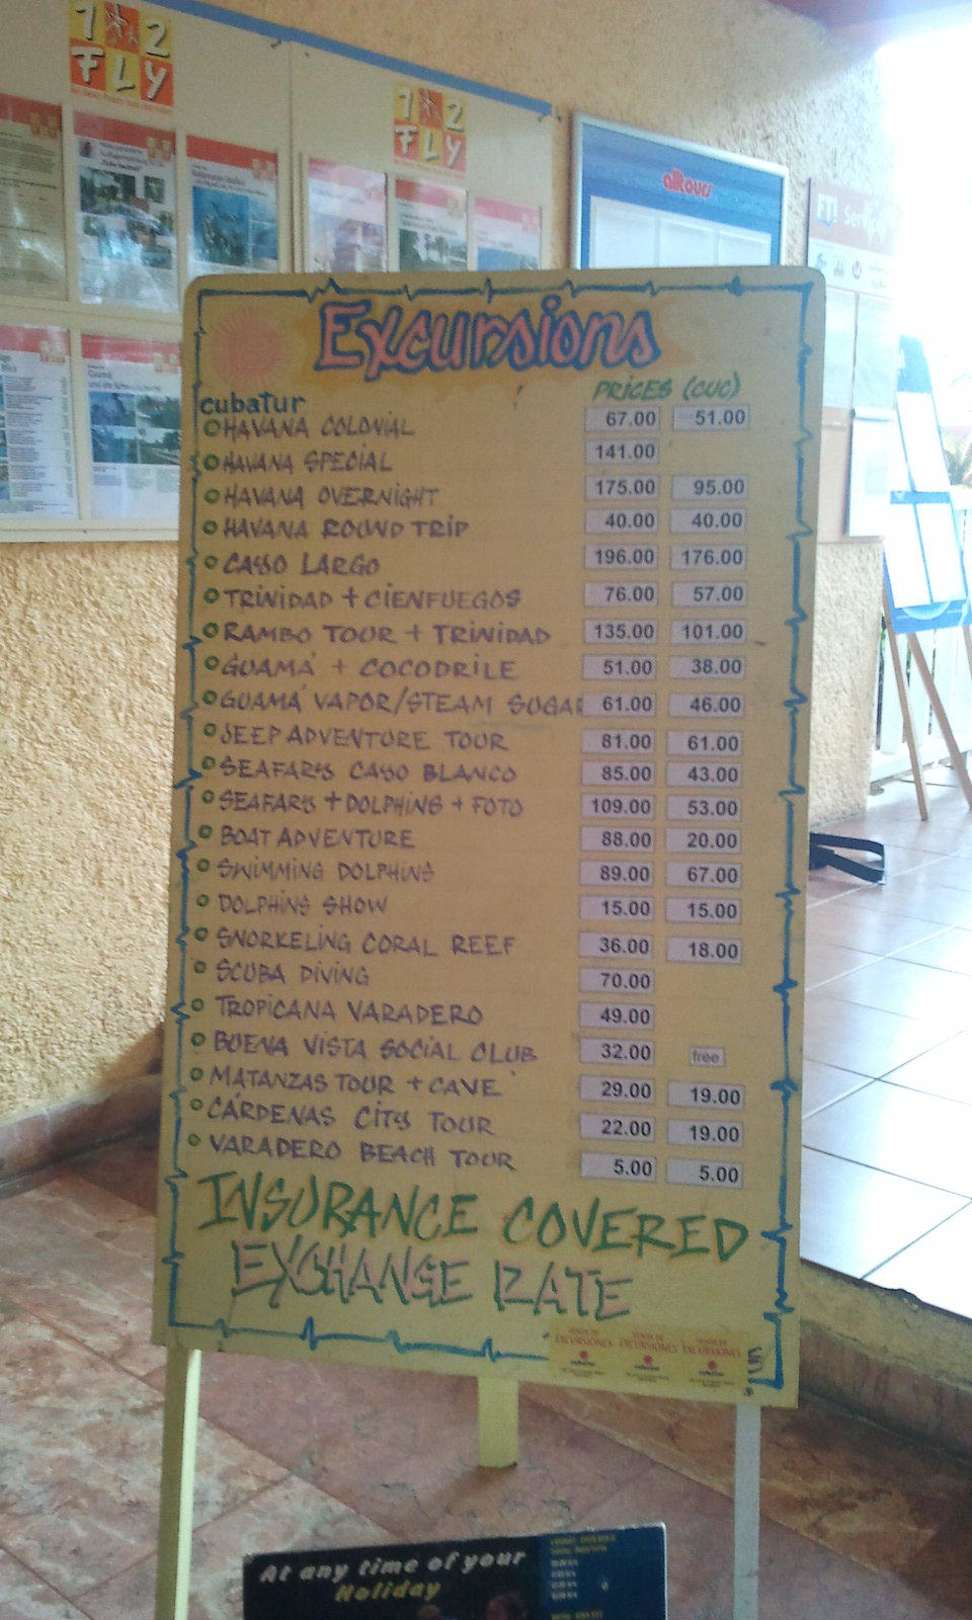 1 2
FLY
1 2
FLY
alltours
FTI
Excursions
PRICES (CUC)
cubatur
HAVANA COLONIAL 67.00 51.00
HAVANA SPECIAL 141.00
HAVANA OVERNIGHT 175.00 95.00
HAVANA ROUND TRIP 40.00 40.00
CAYO LARGO 196.00 176.00
TRINIDAD + CIENFUEGOS 76.00 57.00
RAMBO TOUR + TRINIDAD 135.00 101.00
GUAMÁ + COCODRILE 51.00 38.00
GUAMÁ VAPOR/STEAM SUGAR 61.00 46.00
JEEP ADVENTURE TOUR 81.00 61.00
SEAFARYS CAYO BLANCO 85.00 43.00
SEAFARYS + DOLPHINS + FOTO 109.00 53.00
BOAT ADVENTURE 88.00 20.00
SWIMMING DOLPHINS 89.00 67.00
DOLPHINS SHOW 15.00 15.00
SNORKELING CORAL REEF 36.00 18.00
SCUBA DIVING 70.00
TROPICANA VARADERO 49.00
BUENA VISTA SOCIAL CLUB 32.00 free
MATANZAS TOUR + CAVE 29.00 19.00
CÁRDENAS CITY TOUR 22.00 19.00
VARADERO BEACH TOUR 5.00 5.00
INSURANCE COVERED
EXCHANGE RATE
EXCURSIONES EXCURSIONES EXCURSIONES
At any time of your
Holiday